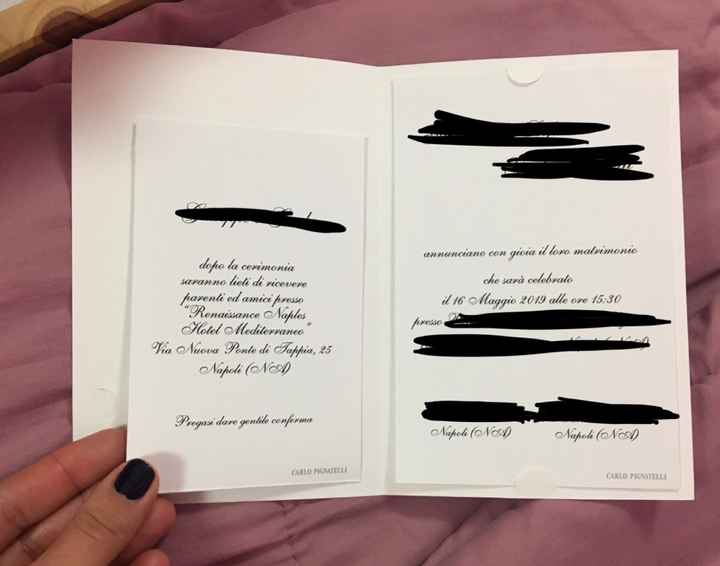 dopo la cerimonia
saranno lieti di ricevere
parenti ed amici presso
"Renaissance Naples
Hotel Mediterraneo"
Via Nuova Ponte di Tappia, 25
Napoli (NA)
Pregasi dare gentile conferma
CARLO PIGNATELLI
annunciano con gioia il loro matrimonio
che sarà celebrato
il 16 Maggio 2019 alle ore 15:30
presso
Napoli (NA) Napoli (NA)
CARLO PIGNATELLI